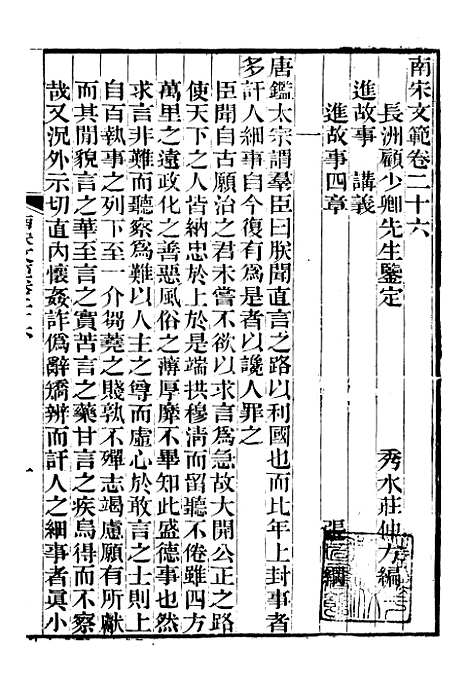 南宋文範卷二十六
長洲顧少卿先生鑒定　秀水莊仲方編
進故事　講義
進故事四章　張
一
唐鑑太宗謂羣臣曰朕開直言之路以利國也而比年上封事者
多訐人細事自今復有爲是者以讒人罪之
臣聞自古願治之君未嘗不欲以求言爲急故大開公正之路
使天下之人皆納忠於上於是端拱穆清而留聽不倦雖四方
萬里之遠政化之善惡風俗之薄厚靡不畢知此盛德事也然
求言非難而聽察爲難以人主之尊而虛心於敢言之士則上
自百執事之列下至一介芻蕘之賤孰不殫志竭慮願有所獻
而其閒貌言之華至言之實苦言之藥甘言之疾烏得而不察
哉又況外示切直內懷姦詐僞辭矯辨而訐人之細事者眞小
南宋文範卷二十六
一